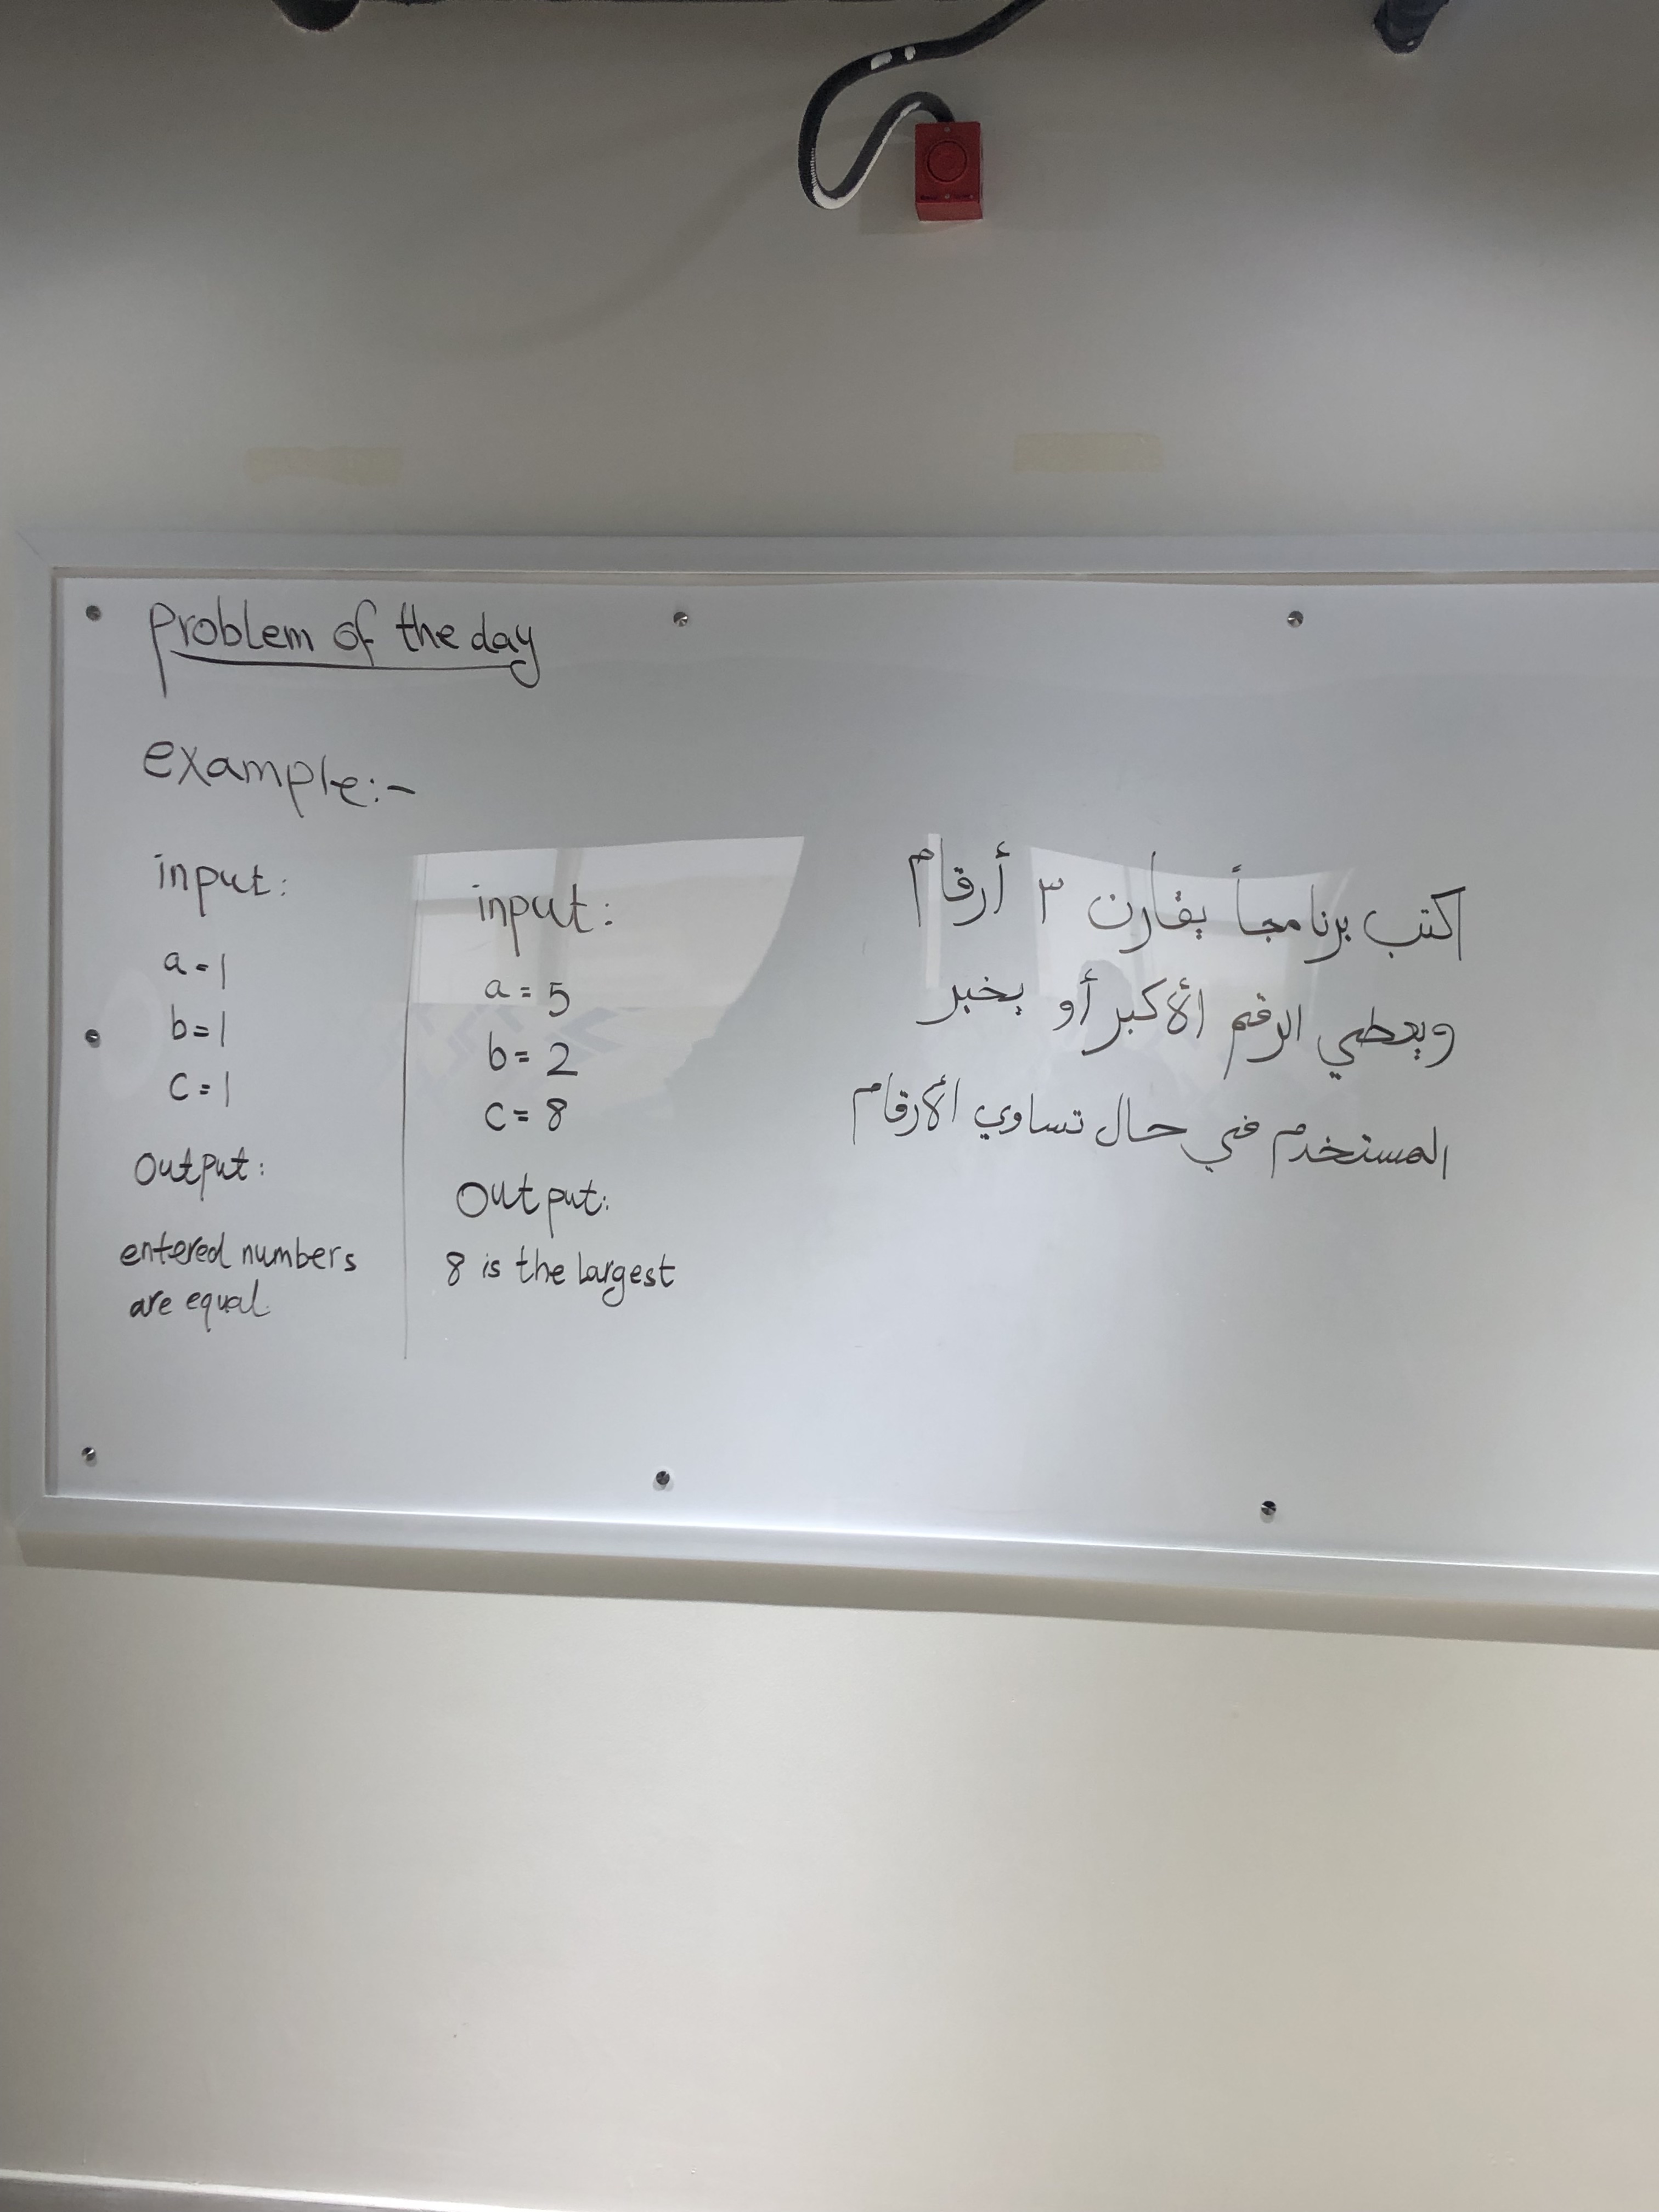 problem of the day
example:-
input:
a=1
b=1
c=1
output:
entered numbers
are equal.
input:
a=5
b=2
c=8
output:
8 is the largest
اكتب برنامجاً يقارن ٣ أرقام
ويعطي الرقم الأكبر أو يخبر
المستخدم في حال تساوي الأرقام